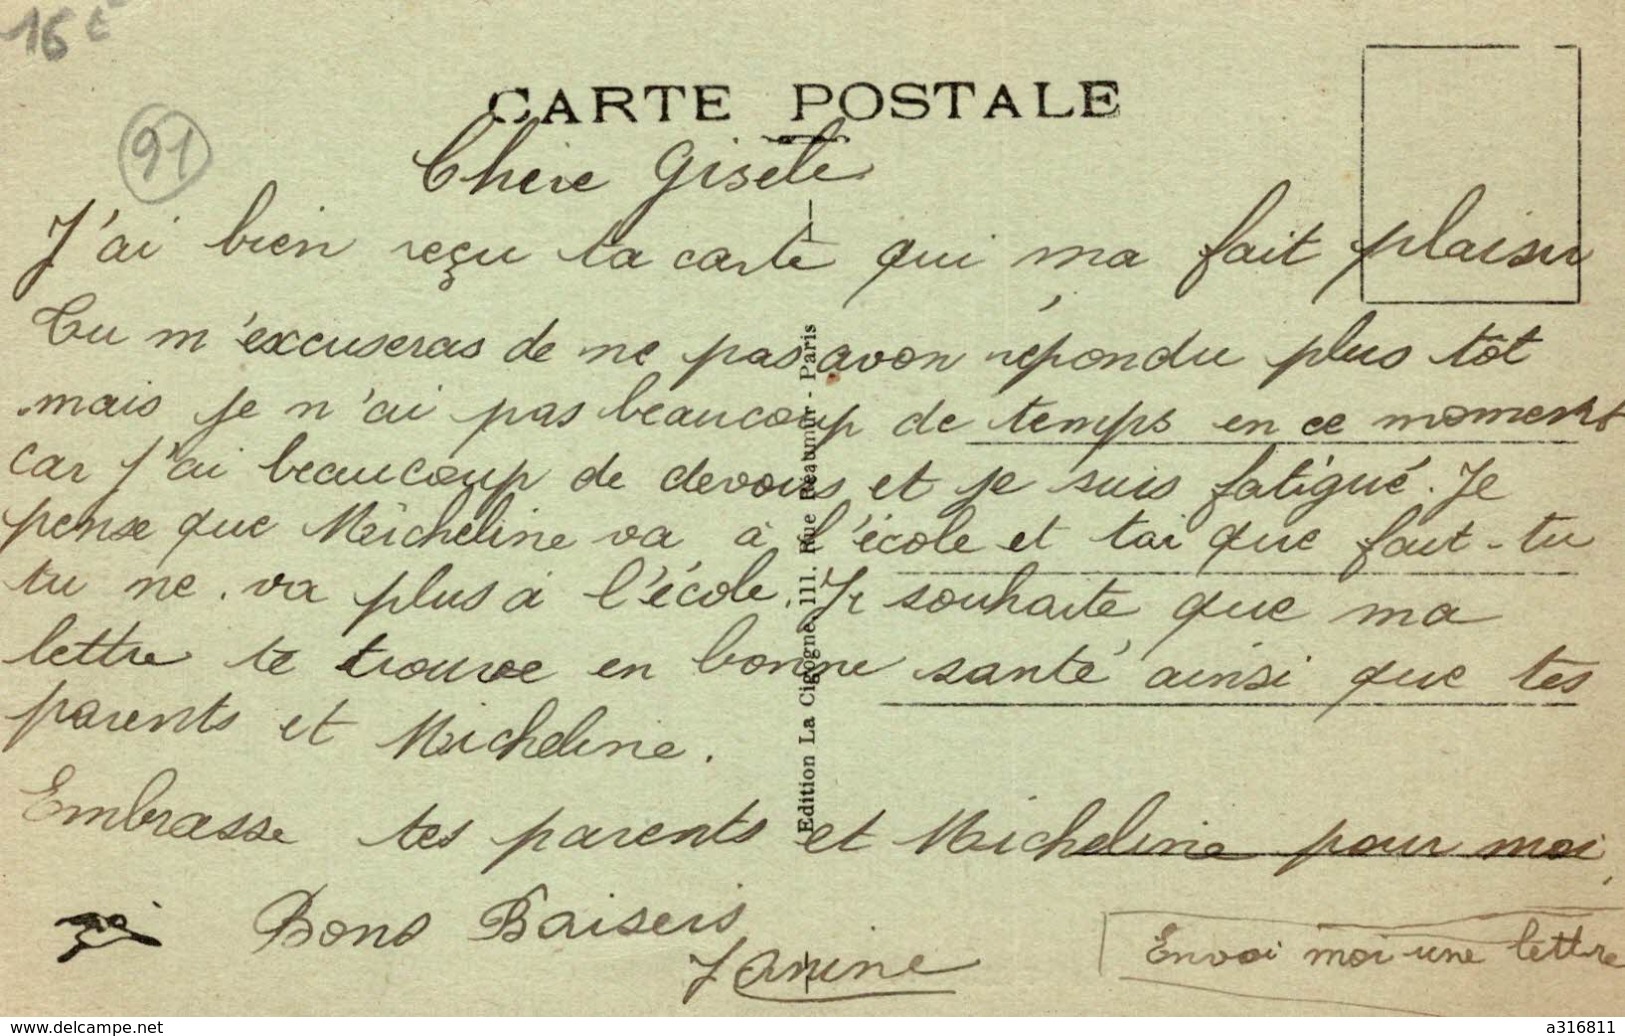 16 €
CARTE POSTALE
91
Chère Gisèle
J'ai bien reçu ta carte qui ma fait plaisir
Tu m'excuseras de ne pas avoir répondu plus tôt
mais je n'ai pas beaucoup de temps en ce moment
car j'ai beaucoup de devoirs et je suis fatigué. Je
pense que Micheline va à l'école et toi que fait-tu
tu ne va plus à l'école. Je souhaite que ma
lettre te trouve en bonne santé ainsi que tes
parents et Micheline.
Embrasse tes parents et Micheline pour moi.
Bons Baisers
Janine
Envoi moi une lettre
Edition La Cigogne, 111. Rue Réaumur - Paris
www.delcampe.net
a316811